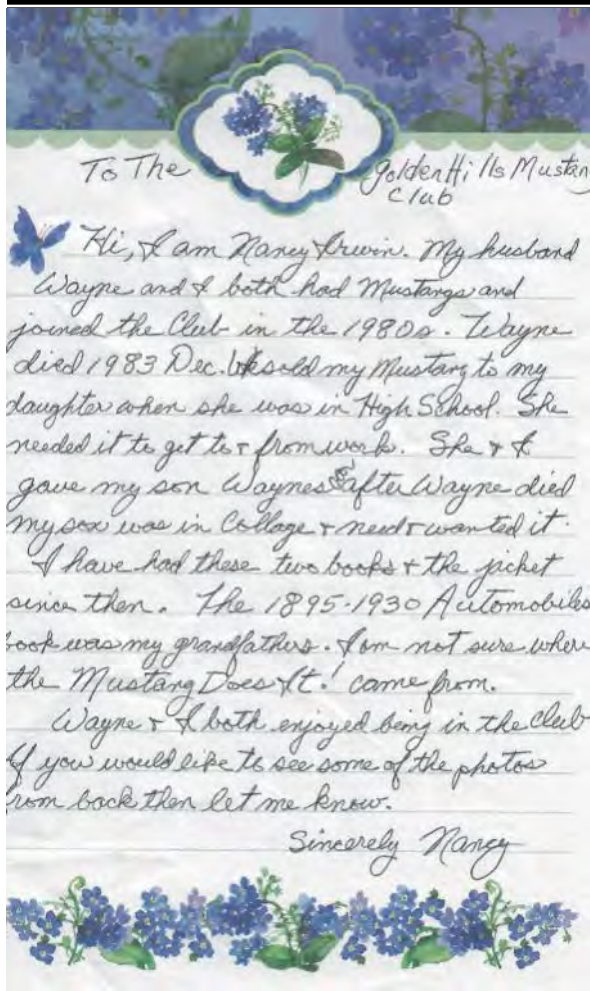 To The Golden Hills Mustang
Club
Hi, I am Nancy Irwin. My husband
Wayne and I both had Mustangs and
joined the Club in the 1980s. Wayne
died 1983 Dec. We sold my Mustang to my
daughter when she was in High School. She
needed it to get to & from work. She & I
gave my son Waynes after Wayne died
my son was in Collage & need & wanted it.
I have had these two books & the jacket
since then. The 1895-1930 Automobiles
book was my grandfathers. I am not sure where
the Mustang Does It! came from.
Wayne & I both enjoyed being in the Club
If you would like to see some of the photos
from back then let me know.
Sincerely Nancy